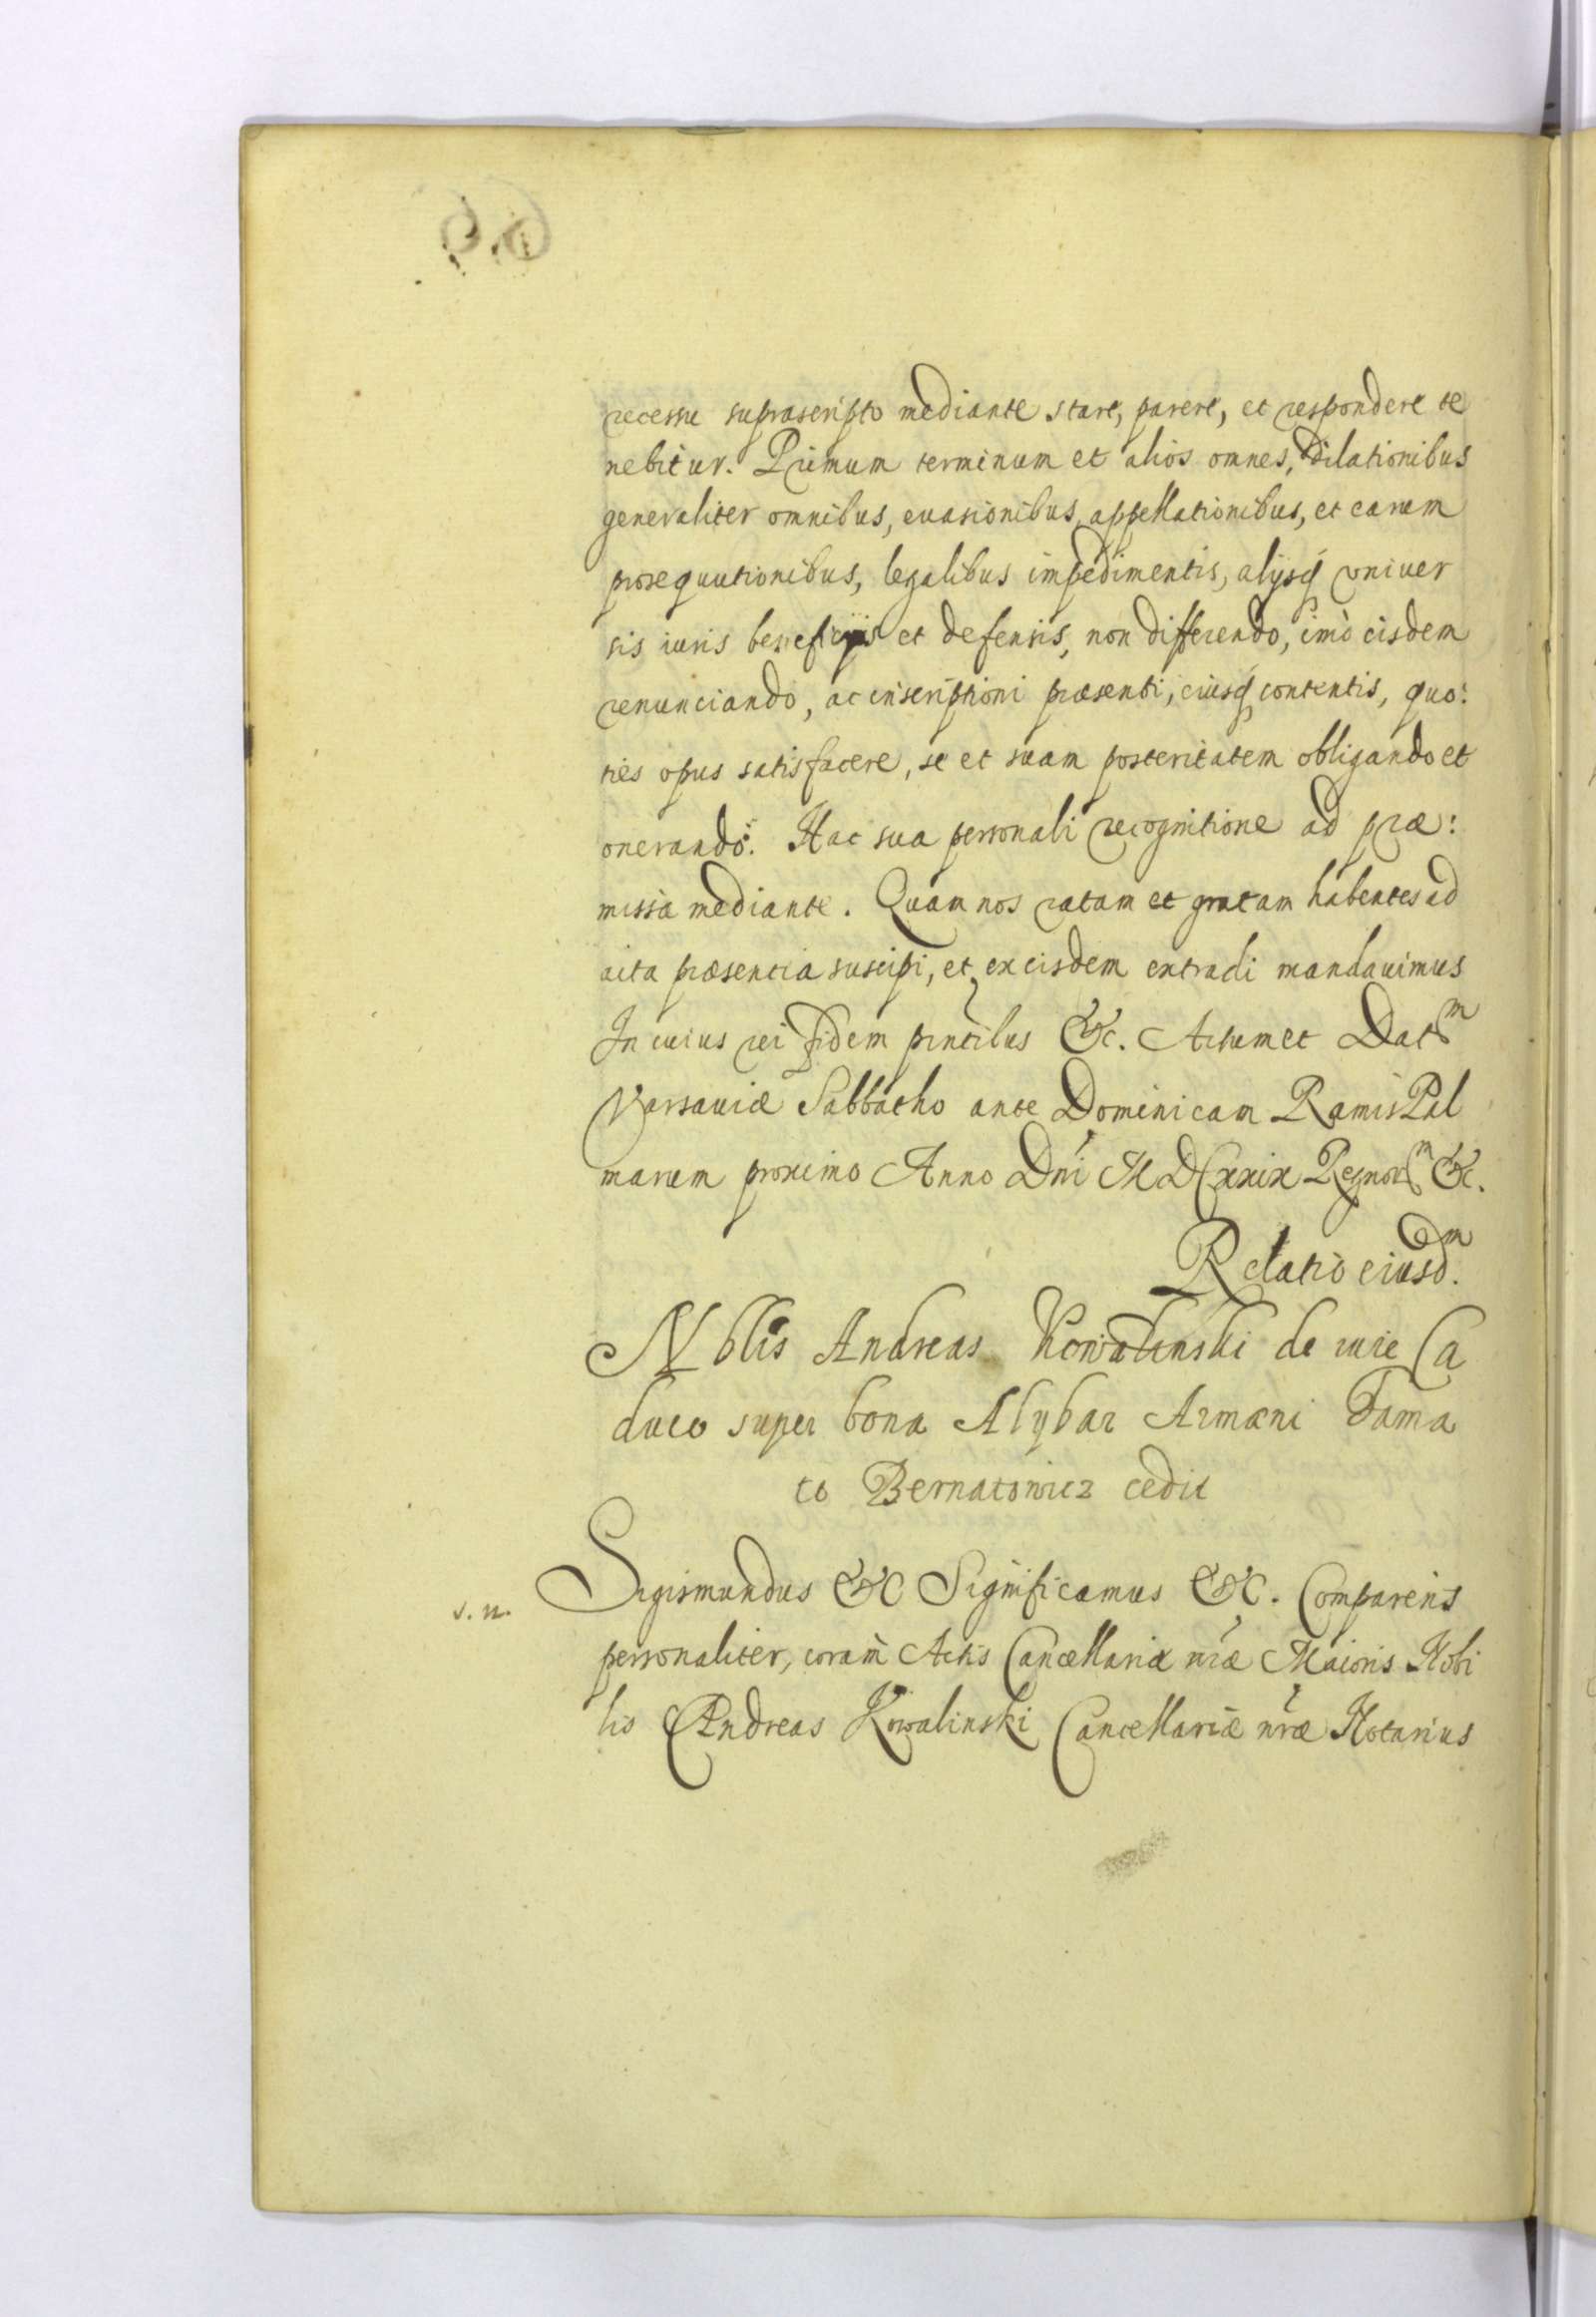 recessu suprascripto mediante stare, parere, et respondere te
nebitur. Primum terminum et alios omnes, dilationibus
generaliter omnibus, euasionibus, appellationibus, et earum
prosequutionibus, legalibus impedimentis, alijsq́ vniuer
sis iuris beneficijs et defensis, non differendo, imò eisdem
renunciando, ac inscriptioni præsenti, eiusq́ contentis, quo:
ties opus satisfacere, se et suam posteritatem obligando et
onerando. Hac sua personali recognitione ad præ:
missa mediante. Quam nos ratam et gratam habentes ad
acta præsentia suscipi, et ex eisdem extradi mandauimus
In cuius rei fidem pñtibus &c. Actum et Datm
Varsauiæ Sabbatho ante Dominicam Ramis Pal
marum proximo Anno Dńi MDCxxix Regnorm &c.
Relatio eiusdm.
Nblis Andreas Kowalinski de iure Ca
duco super bona Alybar Armæni Dama
to Bernatowicz cedit
s. n.
Sigismundus &c Significamus &c. Comparens
personaliter, coram Actis Cancellariæ nr̃æ Maioris Nobi
lis Andreas Kowalinski Cancellariæ nr̃æ Notarius